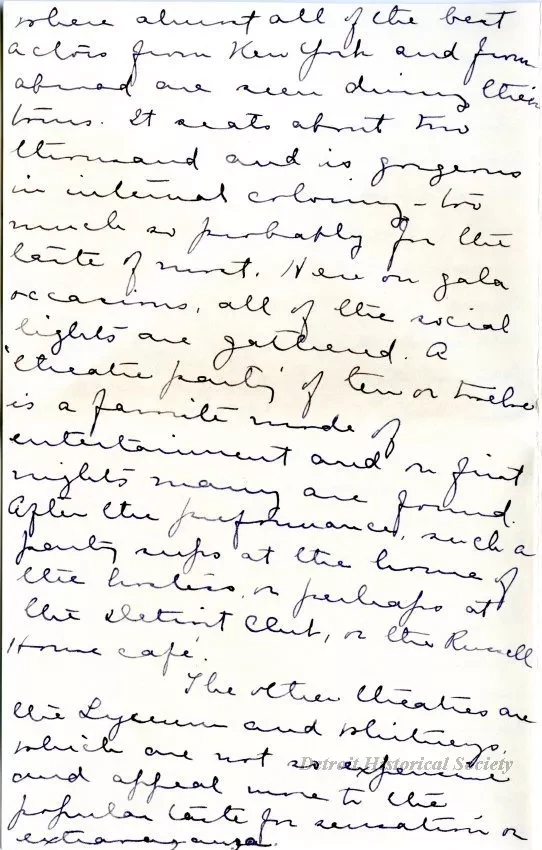 where almost all of the best
actors from New York and from
abroad are seen during their
tours. It seats about two
thousand and is gorgeous
in internal coloring - too
much so probably for the
taste of most. Here on gala
occasions, all of the social
lights are gathered. A
"theatre party" of ten or twelve
is a favorite mode of
entertainment and on first
nights many are found.
After the performance, such a
party sups at the home of
the hostess, or perhaps at
the Detroit Club, or the Russell
House café.
The other theatres are
the Lyceum and Whitneys,
which are not so expensive
and appeal more to the
popular taste for sensation or
extravaganza.
Detroit Historical Society